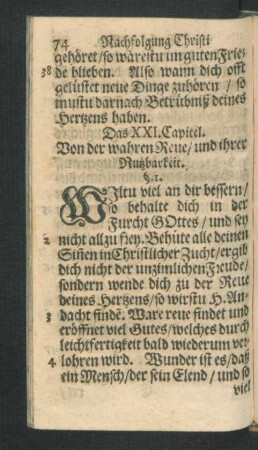 74 Nachfolgung Christi
gehöret/so wärestu im guten Frie-
38 de blieben. Also wann dich offt
gelüstet neue Dinge zuhören / so
mustu darnach Betrübniß deines
Hertzens haben.
Das XXI. Capitel.
Von der wahren Reue/ und ihrer
Nutzbarkeit.
§. 1.
Wiltu viel an dir bessern/
so behalte dich in der
Furcht GOttes/ und sey
2 nicht allzu frey. Behüte alle deinen
Siñen in Christlicher Zucht/ergib
dich nicht der unzimlichen Freude/
sondern wende dich zu der Reue
deines Hertzens/so wirstu H. An-
3 dacht findẽ. Ware reue findet und
eröffnet viel Gutes/welches durch
leichtfertigkeit bald wiederum ver-
4 lohren wird. Wunder ist es/daß
ein Mensch/der sein Elend/ und so
viel